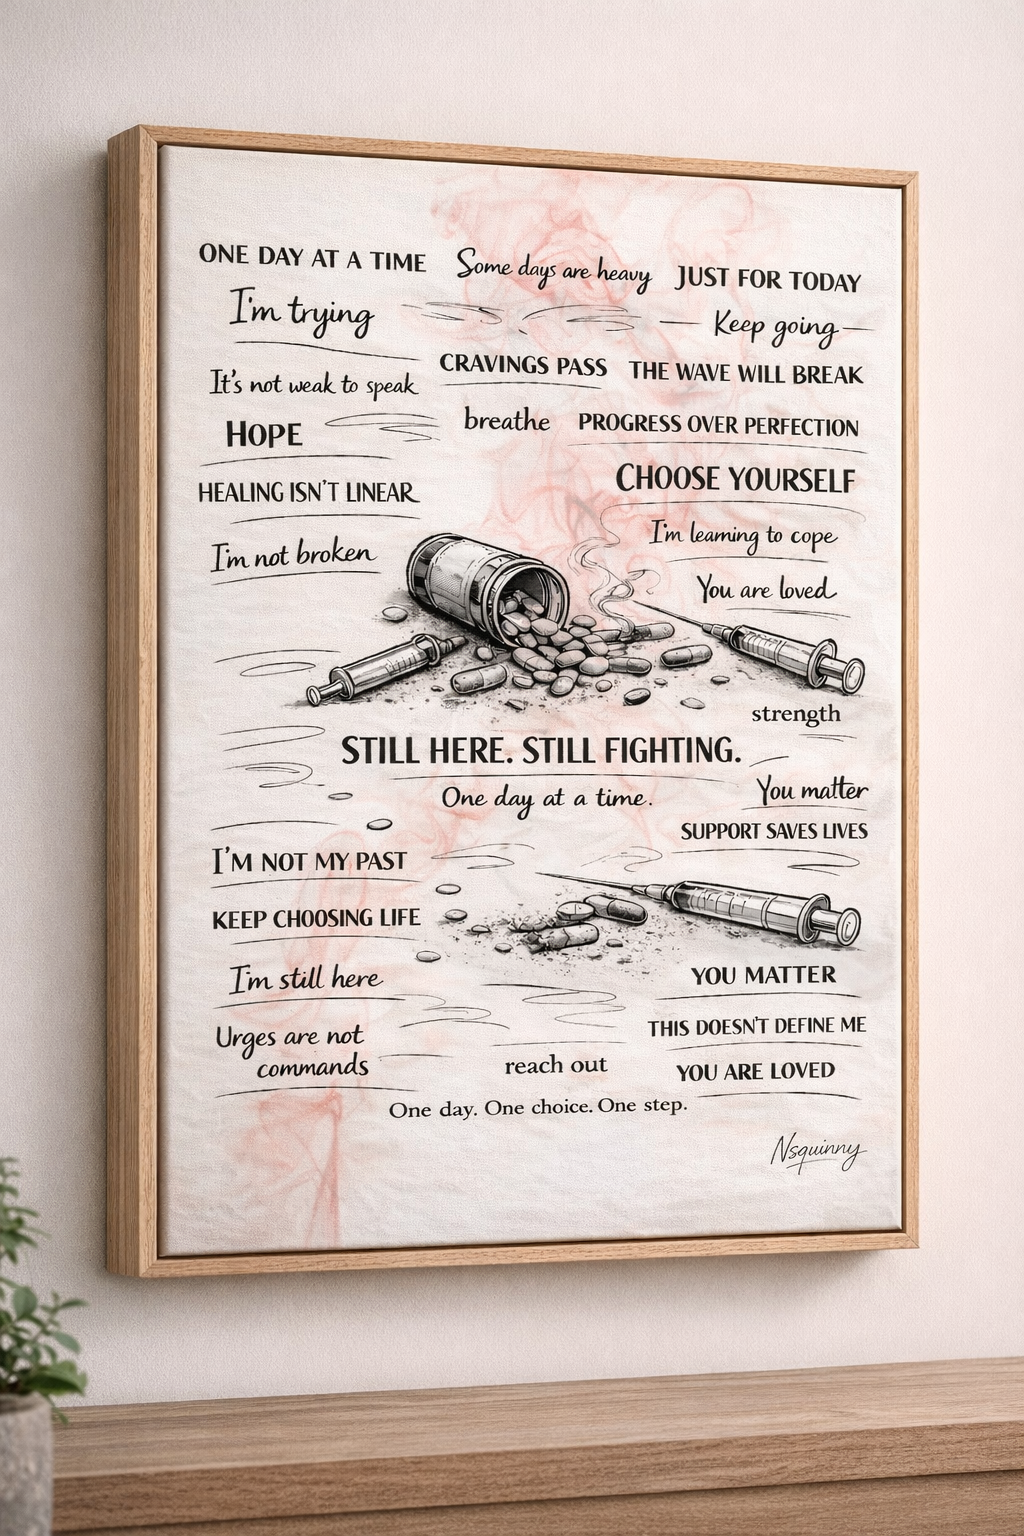 ONE DAY AT A TIME
Some days are heavy
JUST FOR TODAY
I'm trying
Keep going
CRAVINGS PASS
THE WAVE WILL BREAK
It's not weak to speak
breathe
PROGRESS OVER PERFECTION
HOPE
CHOOSE YOURSELF
HEALING ISN'T LINEAR
I'm learning to cope
I'm not broken
You are loved
strength
STILL HERE. STILL FIGHTING.
One day at a time.
You matter
SUPPORT SAVES LIVES
I'M NOT MY PAST
KEEP CHOOSING LIFE
I'm still here
YOU MATTER
Urges are not
commands
THIS DOESN'T DEFINE ME
reach out
YOU ARE LOVED
One day. One choice. One step.
Nsquinny